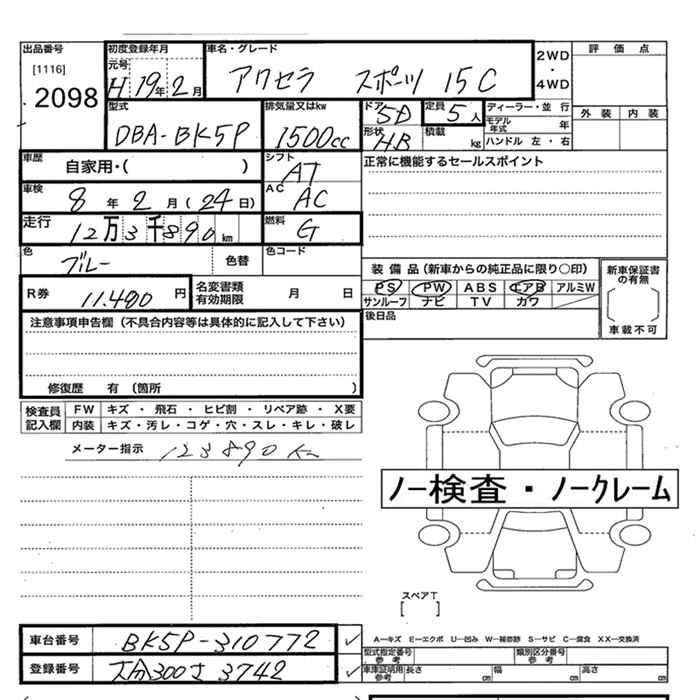 出品番号 初度登録年月 車名・グレード 2WD・4WD 評価点
[1116] 元号
2098 H 19年 2月 アクセラ スポーツ 15C
型式 排気量又はkw ドア 5D 定員 5人 ディーラー・並行 外装 内装
DBA-BK5P 1500cc 形状 HB 積載 kg モデル年式 年
ハンドル 左・右
車歴 自家用・( ) シフト AT 正常に機能するセールスポイント
車検 8年 2月 (24日) AC AC
走行 12万3千890km 燃料 G
色 ブルー 色替 色コード
装備品(新車からの純正品に限り○印) 新車保証書の有無
R券 11.490円 名変書類有効期限 月 日
PS PW ABS エアB アルミW
サンルーフ ナビ TV カワ
車載不可
注意事項申告欄(不具合内容等は具体的に記入して下さい) 後日品
修復歴 有 (箇所 )
検査員記入欄 FW キズ・飛石・ヒビ割・リペア跡・X要
内装 キズ・汚レ・コゲ・穴・スレ・キレ・破レ
メーター指示 123890K
ノー検査・ノークレーム
スペアT
[ ]
A―キズ E―エクボ U―凹み W―補修跡 S―サビ C―腐食 XX―交換済
車台番号 BK5P-310772 ✓ 型式指定番号 参考 類別区分番号 参考
登録番号 300 3742 ✓ 車庫証明用 参考 長さ cm 幅 cm 高さ cm